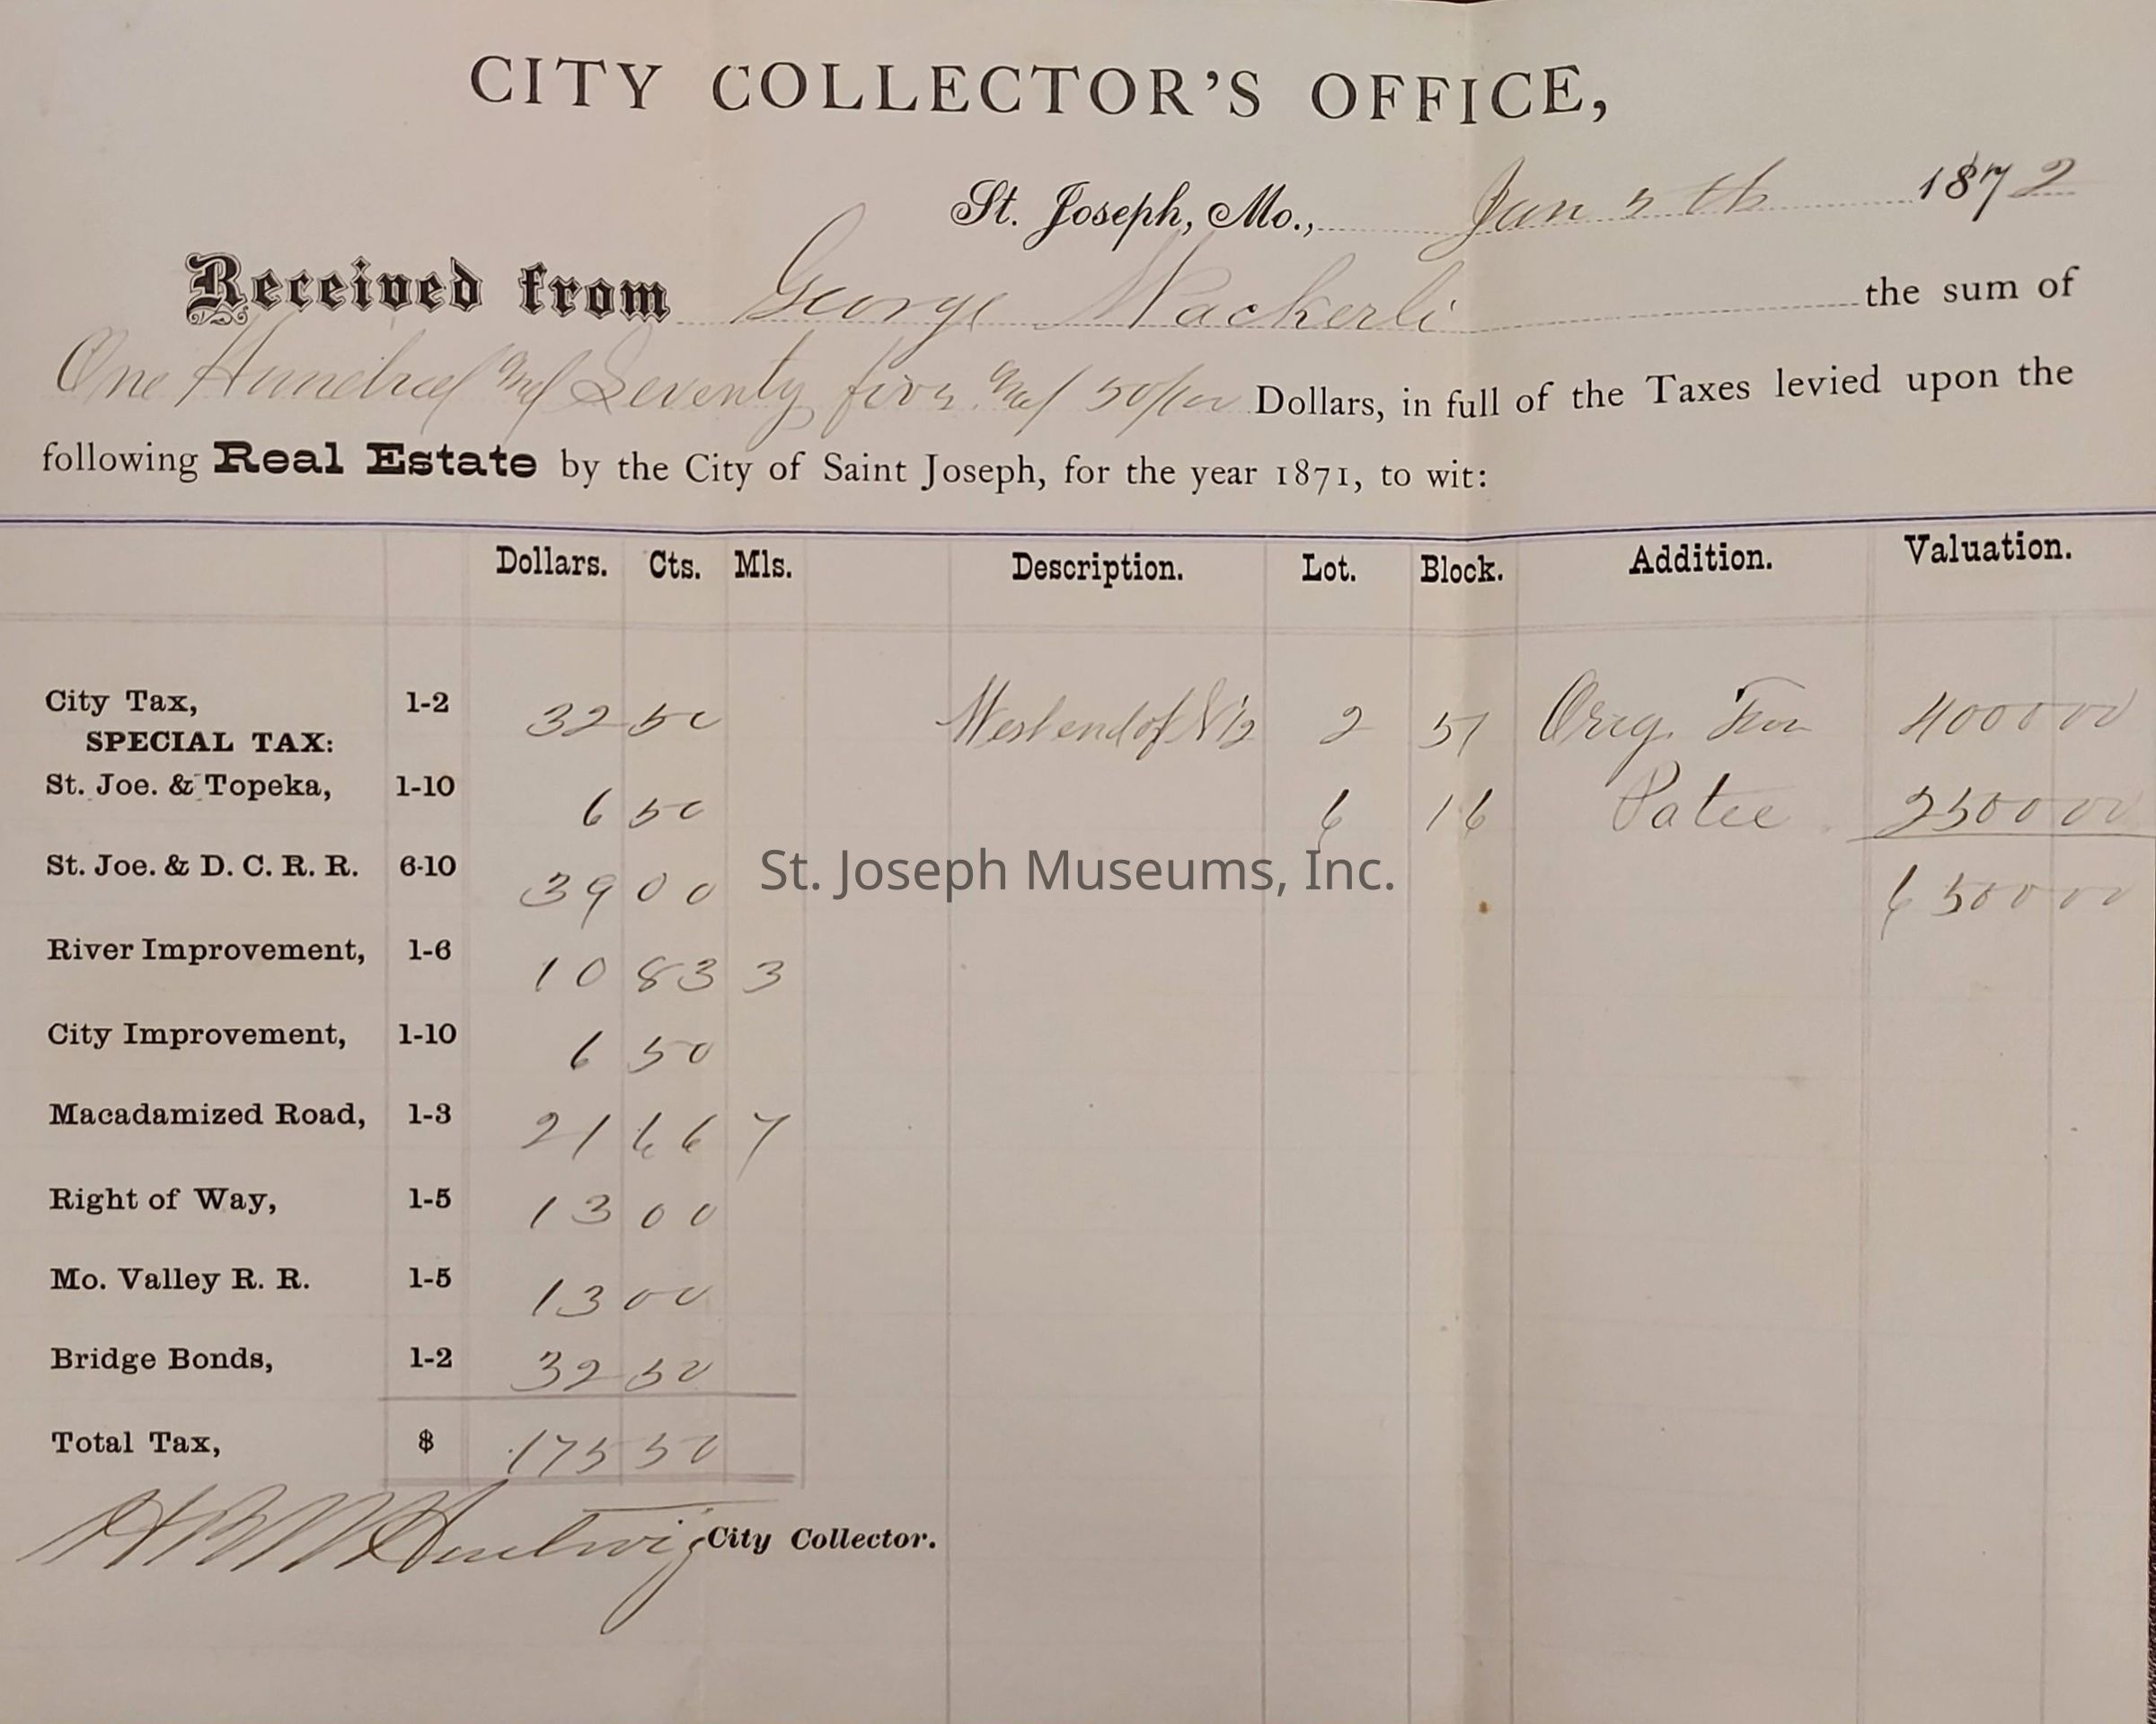 CITY COLLECTOR'S OFFICE,
St. Joseph, Mo., Jan 5th 1872
Received from George Wackerli the sum of
One Hundred and Seventy five and 50/100 Dollars, in full of the Taxes levied upon the
following Real Estate by the City of Saint Joseph, for the year 1871, to wit:
Dollars. Cts. Mls. Description. Lot. Block. Addition. Valuation.
City Tax, 1-2 32 50 West end of N 1/2 2 51 Orig. Town 4000 00
SPECIAL TAX:
St. Joe. & Topeka, 1-10 6 50 6 16 Patee 2500 00
St. Joe. & D. C. R. R. 6-10 39 00 6500 00
St. Joseph Museums, Inc.
River Improvement, 1-6 10 83 3
City Improvement, 1-10 6 50
Macadamized Road, 1-3 21 66 7
Right of Way, 1-5 13 00
Mo. Valley R. R. 1-5 13 00
Bridge Bonds, 1-2 32 50
Total Tax, $ 175 50
Hartwig City Collector.